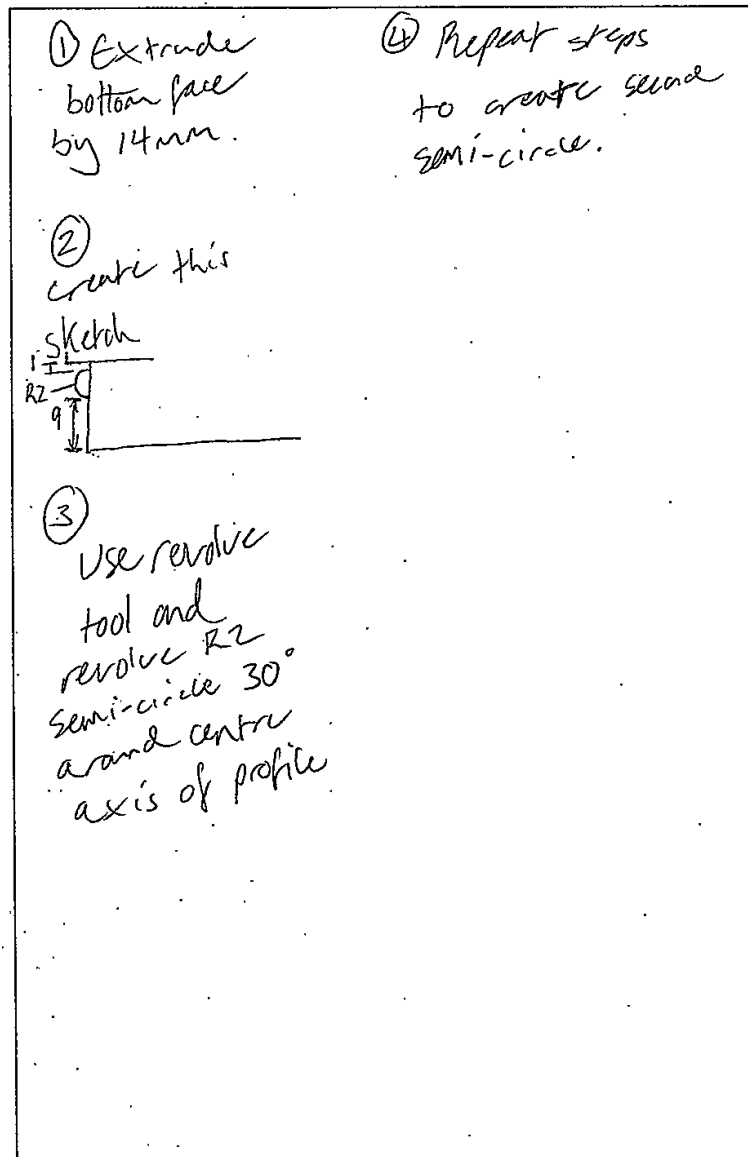 ① Extrude
bottom face
by 14mm.
②
create this
sketch
1
R2
9
③
Use revolve
tool and
revolve R2
semi-circle 30°
around centre
axis of profile
④ Repeat steps
to create second
semi-circle.